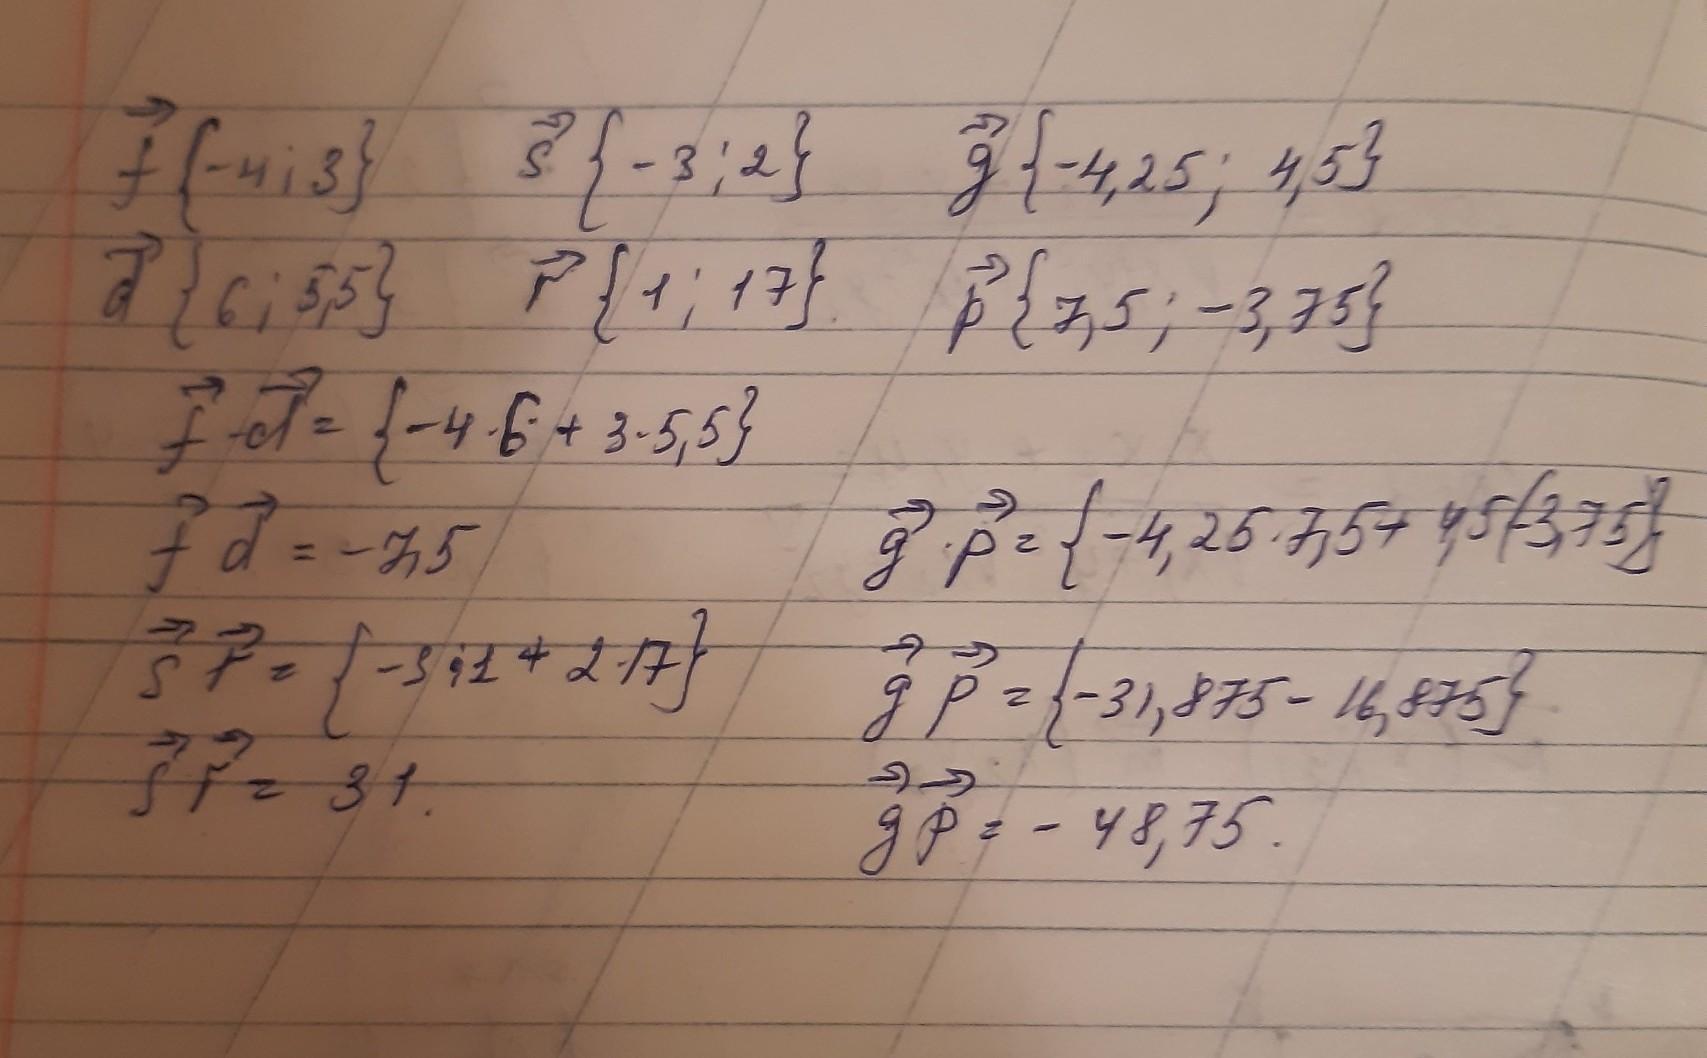 f⃗ {-4; 3} s⃗ {-3; 2} g⃗ {-4,25; 4,5}
d⃗ {6; 5,5} r⃗ {1; 17} p⃗ {7,5; -3,75}
f⃗ · d⃗ = {-4·6 + 3·5,5}
f⃗ d⃗ = -7,5
g⃗ · p⃗ = {-4,25·7,5 + 4,5(-3,75)}
s⃗ r⃗ = {-3·1 + 2·17}
g⃗ p⃗ = {-31,875 - 16,875}
s⃗ r⃗ = 31.
g⃗ p⃗ = -48,75.